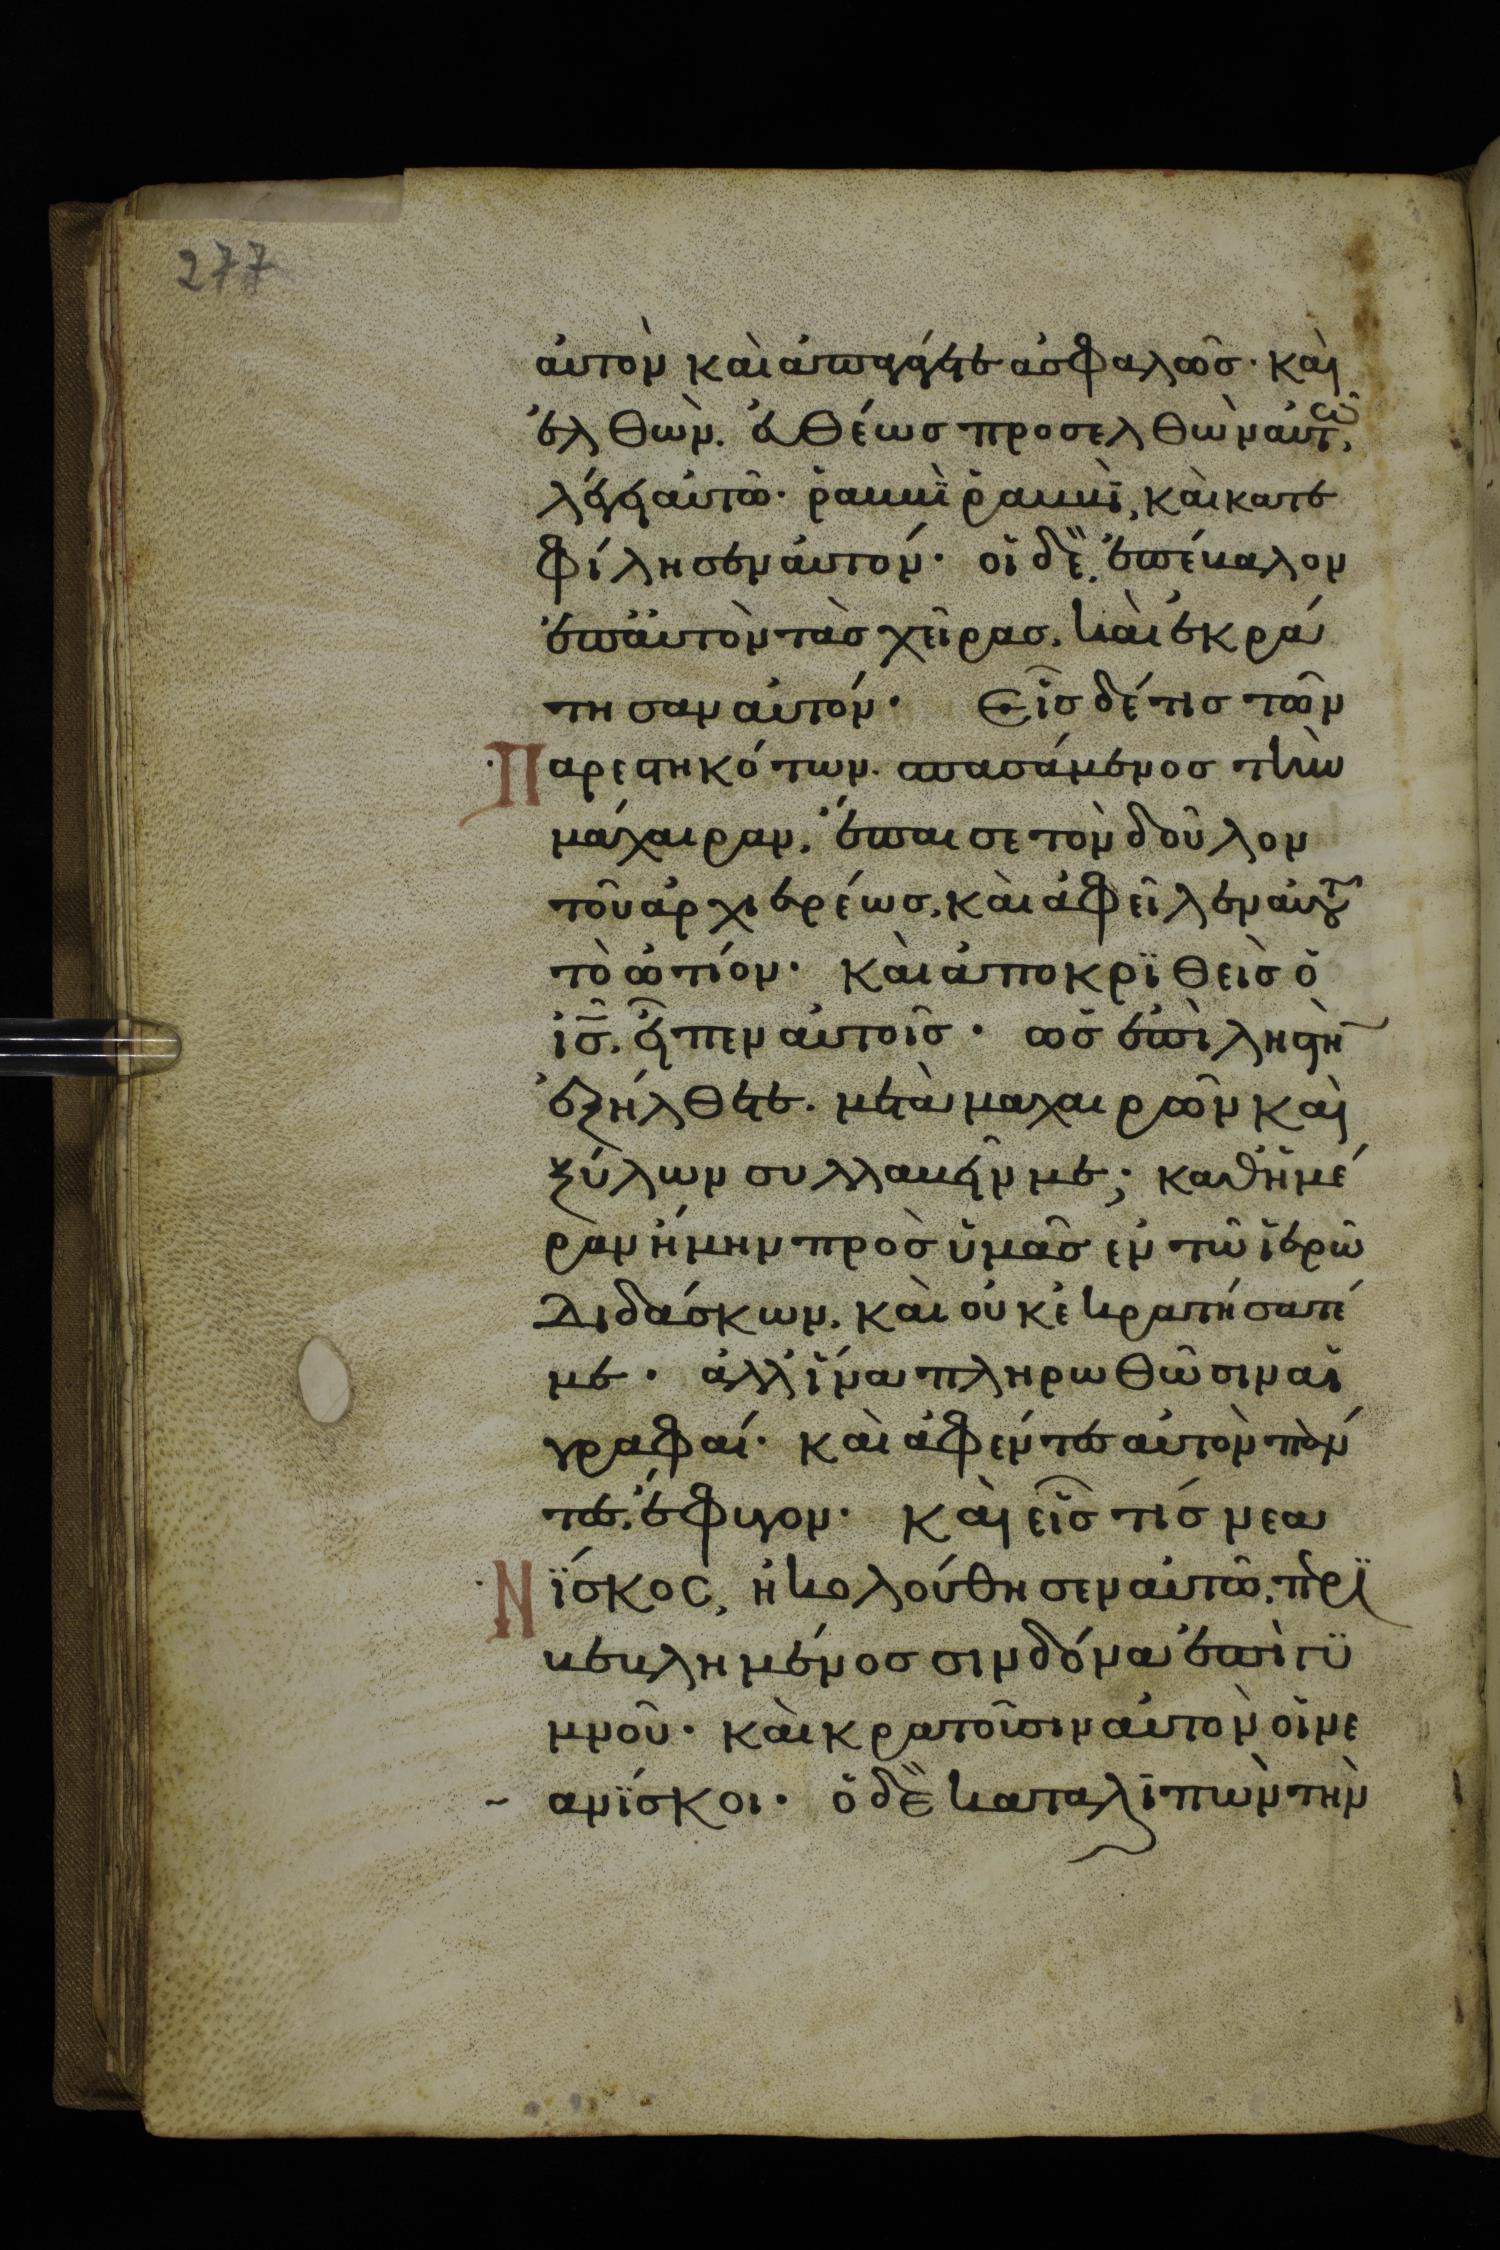 277
αὐτὸν καὶ ἀπαγάγετε ἀσφαλῶσ· καὶ
ἐλθὼν. εὐθέωσ προσελθὼν αὐτῶ,
λέγει αὐτῶ· ῥαββὶ ῥαββὶ, καὶ κατε
φίλησεν αὐτόν· οἱ δὲ, ἐπέβαλον
ἐπ' αὐτὸν τὰσ χεῖρασ. καὶ ἐκρά
τησαν αὐτόν· Εἷσ δέ τισ τῶν
Παρεστηκότων. σπασάμενοσ τὴν
μάχαιραν, ἔπαισε τὸν δοῦλον
τοῦ ἀρχιερέωσ, καὶ ἀφεῖλεν αὐτοῦ
τὸ ὠτίον· καὶ ἀποκρϊθεὶσ ὁ
ἰσ̅. εἶπεν αὐτοῖσ· ὡσ ἐπὶ ληστὴν
ἐξήλθετε. μετὰ μαχαιρῶν καὶ
ξύλων συλλαβεῖν με; καθ' ἡμέ
ραν ἤμην πρὸσ ὑμᾶσ ἐν τῶ ἱερῶ
Διδάσκων. καὶ οὐκ ἐκρατήσατέ
με· ἀλλ' ἵνα πληρωθῶσιν αἱ
γραφαί· καὶ ἀφέντεσ αὐτὸν πάν
τεσ, ἔφυγον· καὶ εἷσ τίσ νεα
Νϊσκοσ, ἠκολούθησεν αὐτῶ, περϊ
βεβλημένοσ σινδόνα ἐπὶ γϋ
μνοῦ· καὶ κρατοῦσιν αὐτὸν οἱ νε
ανϊσκοι· ὁ δὲ καταλιπὼν τὴν